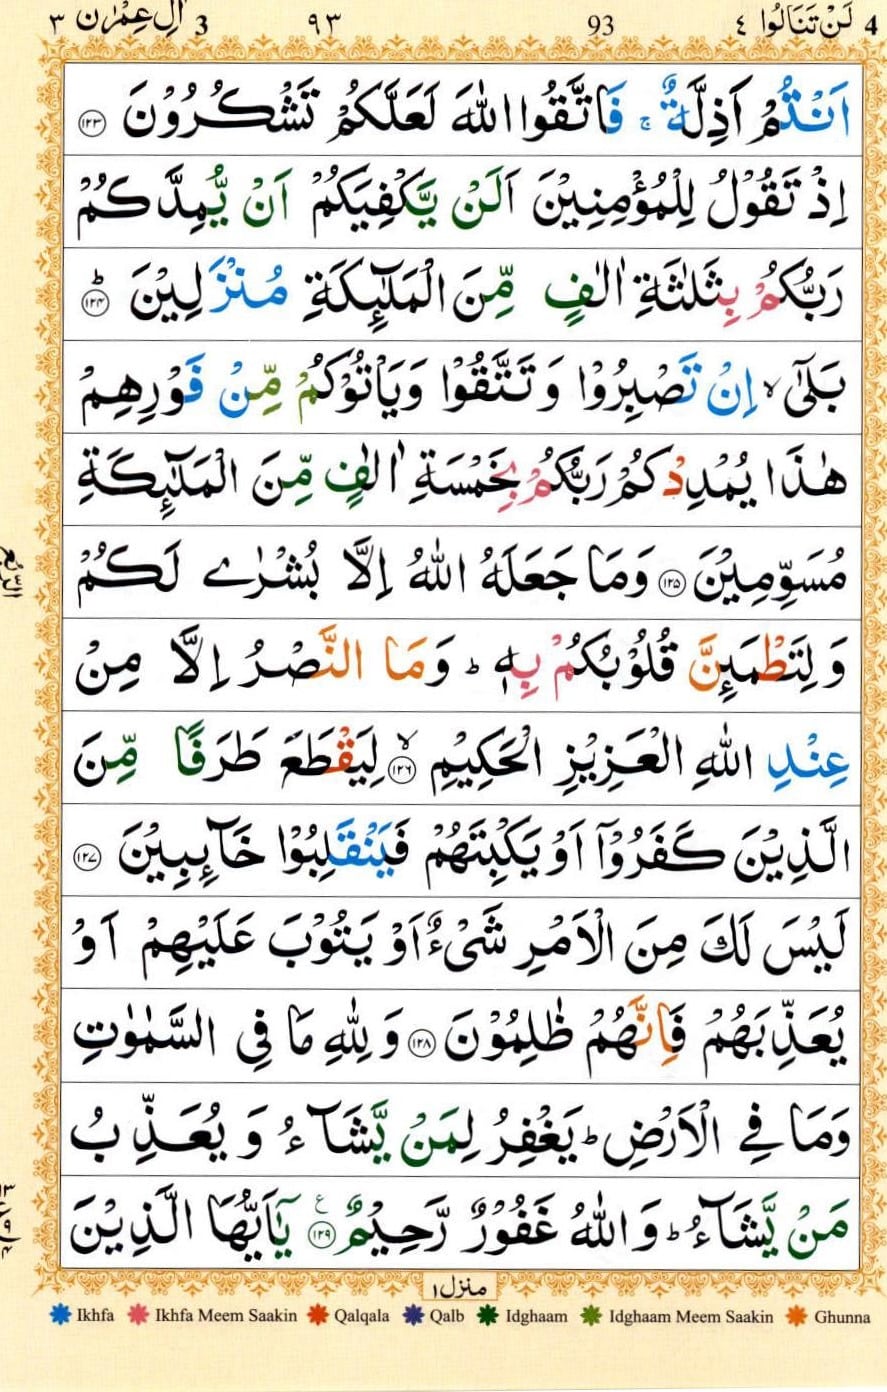 اٰلِ عِمْرٰن ٣ 3 ٩٣ 93 لَنْ تَنَالُوا ٤ 4
اَنْتُمْ اَذِلَّةٌ ۚ فَاتَّقُوا اللهَ لَعَلَّكُمْ تَشْكُرُوْنَ ۝۱۲۳
اِذْ تَقُوْلُ لِلْمُؤْمِنِيْنَ اَلَنْ يَّكْفِيَكُمْ اَنْ يُّمِدَّكُمْ
رَبُّكُمْ بِثَلٰثَةِ اٰلٰفٍ مِّنَ الْمَلٰٓئِكَةِ مُنْزَلِيْنَ ؕ۝۱۲۴
بَلٰٓى ۙ اِنْ تَصْبِرُوْا وَ تَتَّقُوْا وَيَاْتُوْكُمْ مِّنْ فَوْرِهِمْ
هٰذَا يُمْدِدْكُمْ رَبُّكُمْ بِخَمْسَةِ اٰلٰفٍ مِّنَ الْمَلٰٓئِكَةِ
مُسَوِّمِيْنَ ۝۱۲۵ وَمَا جَعَلَهُ اللهُ اِلَّا بُشْرٰى لَكُمْ
وَ لِتَطْمَئِنَّ قُلُوْبُكُمْ بِهٖ ؕ وَمَا النَّصْرُ اِلَّا مِنْ
عِنْدِ اللهِ الْعَزِيْزِ الْحَكِيْمِ ۙ۝۱۲۶ لِيَقْطَعَ طَرَفًا مِّنَ
الَّذِيْنَ كَفَرُوْٓا اَوْ يَكْبِتَهُمْ فَيَنْقَلِبُوْا خَآئِبِيْنَ ۝۱۲۷
لَيْسَ لَكَ مِنَ الْاَمْرِ شَىْءٌ اَوْ يَتُوْبَ عَلَيْهِمْ اَوْ
يُعَذِّبَهُمْ فَاِنَّهُمْ ظٰلِمُوْنَ ۝۱۲۸ وَ لِلّٰهِ مَا فِى السَّمٰوٰتِ
وَمَا فِى الْاَرْضِ ؕ يَغْفِرُ لِمَنْ يَّشَآءُ وَ يُعَذِّبُ
مَنْ يَّشَآءُ ؕ وَ اللهُ غَفُوْرٌ رَّحِيْمٌ ۝۱۲۹ ع يٰٓاَيُّهَا الَّذِيْنَ
منزل ١
Ikhfa Ikhfa Meem Saakin Qalqala Qalb Idghaam Idghaam Meem Saakin Ghunna